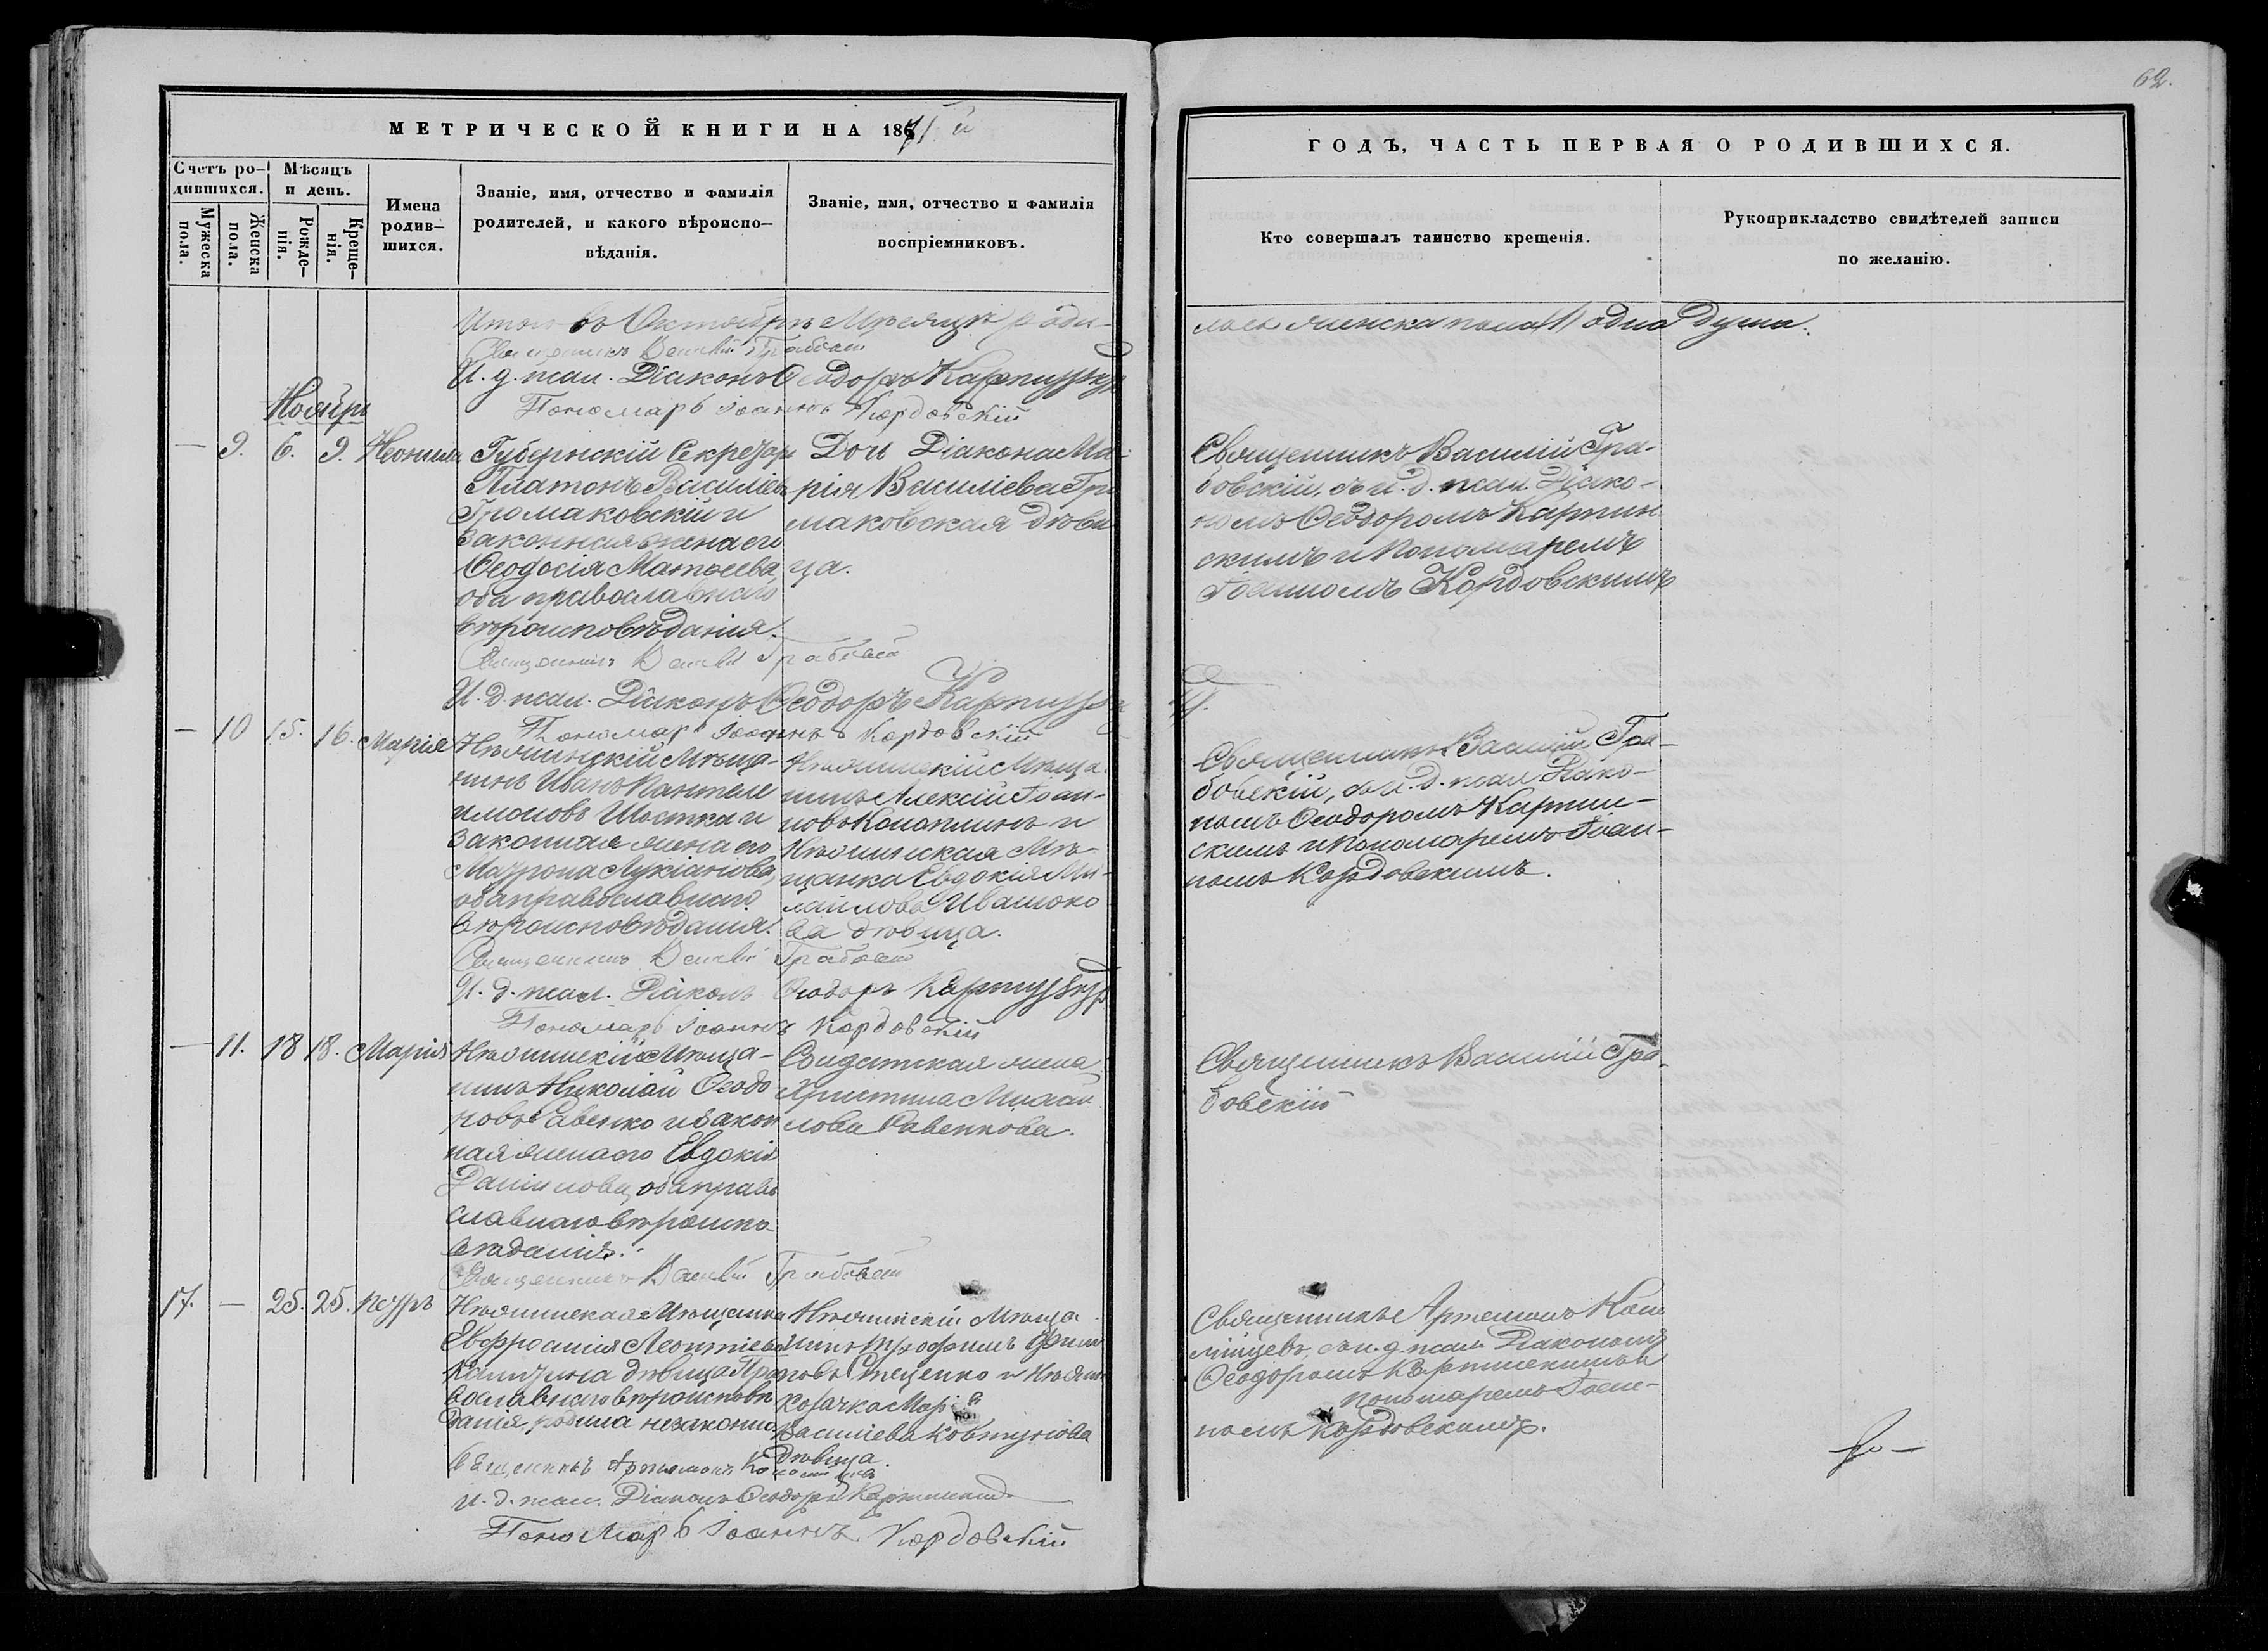 62.
МЕТРИЧЕСКОЙ КНИГИ НА 1871 й
ГОДЪ, ЧАСТЬ ПЕРВАЯ О РОДИВШИХСЯ.
Счетъ ро-
дившихся.
Мужеска
пола.
Женска
пола.
Мѣсяцъ
и день.
Рожде-
нія.
Креще-
нія.
Имена
родив-
шихся.
Званіе, имя, отчество и фамилія
родителей, и какого вѣроиспо-
вѣданія.
Званіе, имя, отчество и фамилія
воспріемниковъ.
Кто совершалъ таинство крещенія.
Рукоприкладство свидѣтелей записи
по желанію.
Итого въ Октябрѣ Мѣсяцѣ роди-
лась женска пола 1 одна душа.
Священникъ Василій
И. д. псал. Діаконъ Ѳеодоръ
Пономарь Іоаннъ Кордовскій
Ноябрь
— 9. 6. 9. Неонила
Губернскій Секретарь
Платонъ Васильевъ
Громаковскій и
законная жена его
Ѳеодосія Матѳеева,
оба православнаго
вѣроисповѣданія.
Дочь Діакона Ма-
рія Василіева Гро
маковская дѣви
ца.
Священникъ Василій Гра-
бовскій, съ и. д. псал. Діако-
номъ Ѳеодоромъ Карпин
скимъ и Пономаремъ
Іоанномъ Кордовскимъ
Священникъ Василій
И. д. псал. Діаконъ Ѳеодоръ
Пономарь Іоаннъ Кордовскій
— 10 15. 16. Марія
Нѣжинскій Мѣща-
нинъ Иванъ Пантеле
имоновъ Шостка и
законная жена его
Матрона Лукіанова,
оба православнаго
вѣроисповѣданія.
Нѣжинскій Мѣща
нинъ Алексій Іоан-
новъ Коноплинъ и
Нѣжинская Мѣ-
щанка Евдокія Ми-
хайлова Ивашоко
ва дѣвица.
Священникъ Василій Гра-
бовскій, съ и. д. псал Діако-
номъ Ѳеодоромъ Карпин-
скимъ и Пономаремъ Іоан-
номъ Кордовскимъ.
Священникъ Василій
И. д. псал. Діаконъ Ѳеодоръ
Пономарь Іоаннъ Кордовскій
— 11. 18 18. Марія
Нѣжинскій Мѣща-
нинъ Николай Ѳеодо
ровъ Савенко и закон
ная жена его Евдокія
Даніилова, оба право
славнаго вѣроиспо
вѣданія.
Солдатская жена
Христина Михай
лова Савенкова.
Священникъ Василій Гра-
бовскій
Священникъ Василій
17. — 25. 25. Петръ
Нѣжинская Мѣщанка
Евфросинія Леонтіева
дѣвица Пра
вославнаго вѣроисповѣ
данія, родила незаконно.
Нѣжинскій Мѣща
нинъ Трофимъ
и Нѣжин
козачка Марія
Василіева Ковтунова
дѣвица.
Священникъ Артемонъ
съ и. д. псал. Діакономъ
Ѳеодоромъ Карпинскимъ и
Пономаремъ Іоан-
номъ Кордовскимъ.
Священникъ Артемонъ
И. д. псал. Діаконъ Ѳеодоръ Карпинскій
Пономарь Іоаннъ Кордовскій